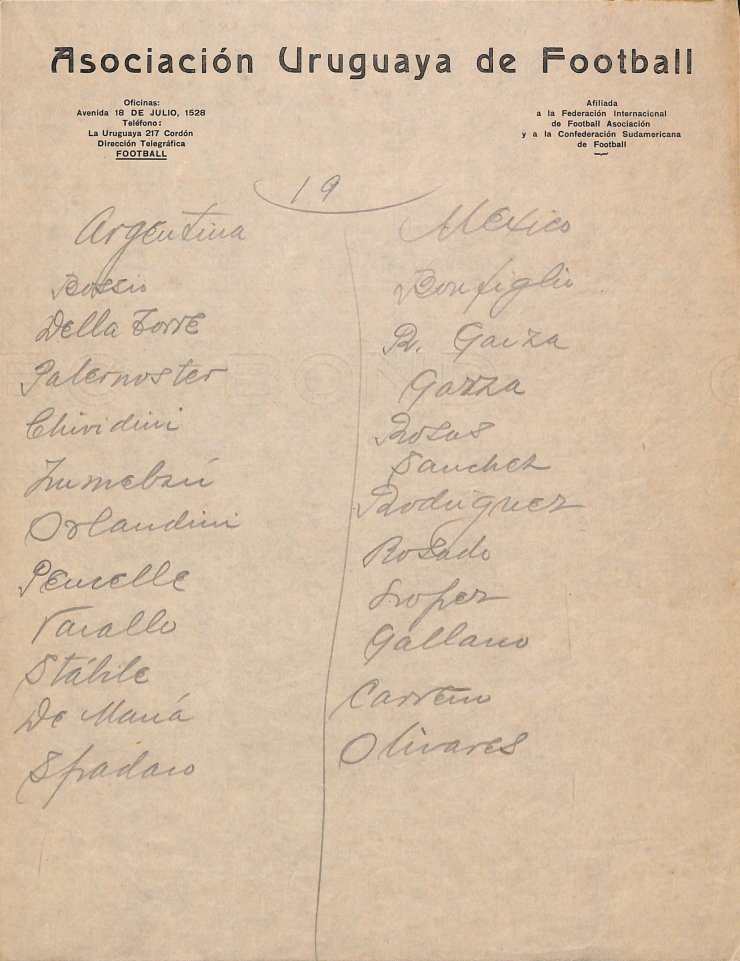 Asociación Uruguaya de Football
Oficinas:
Avenida 18 DE JULIO, 1528
Teléfono:
La Uruguaya 217 Cordón
Dirección Telegráfica
FOOTBALL
Afiliada
a la Federación Internacional
de Football Asociación
y a la Confederación Sudamericana
de Football
19
Argentina
Bossio
Della Torre
Paternoster
Chividini
Zumelzú
Orlandini
Peucelle
Varallo
Stábile
De María
Spadaro
Mexico
Bonfiglio
R. Garza
Garza
Rosas
Sanchez
Rodriguez
Rosado
Lopez
Gallano
Carreno
Olivares